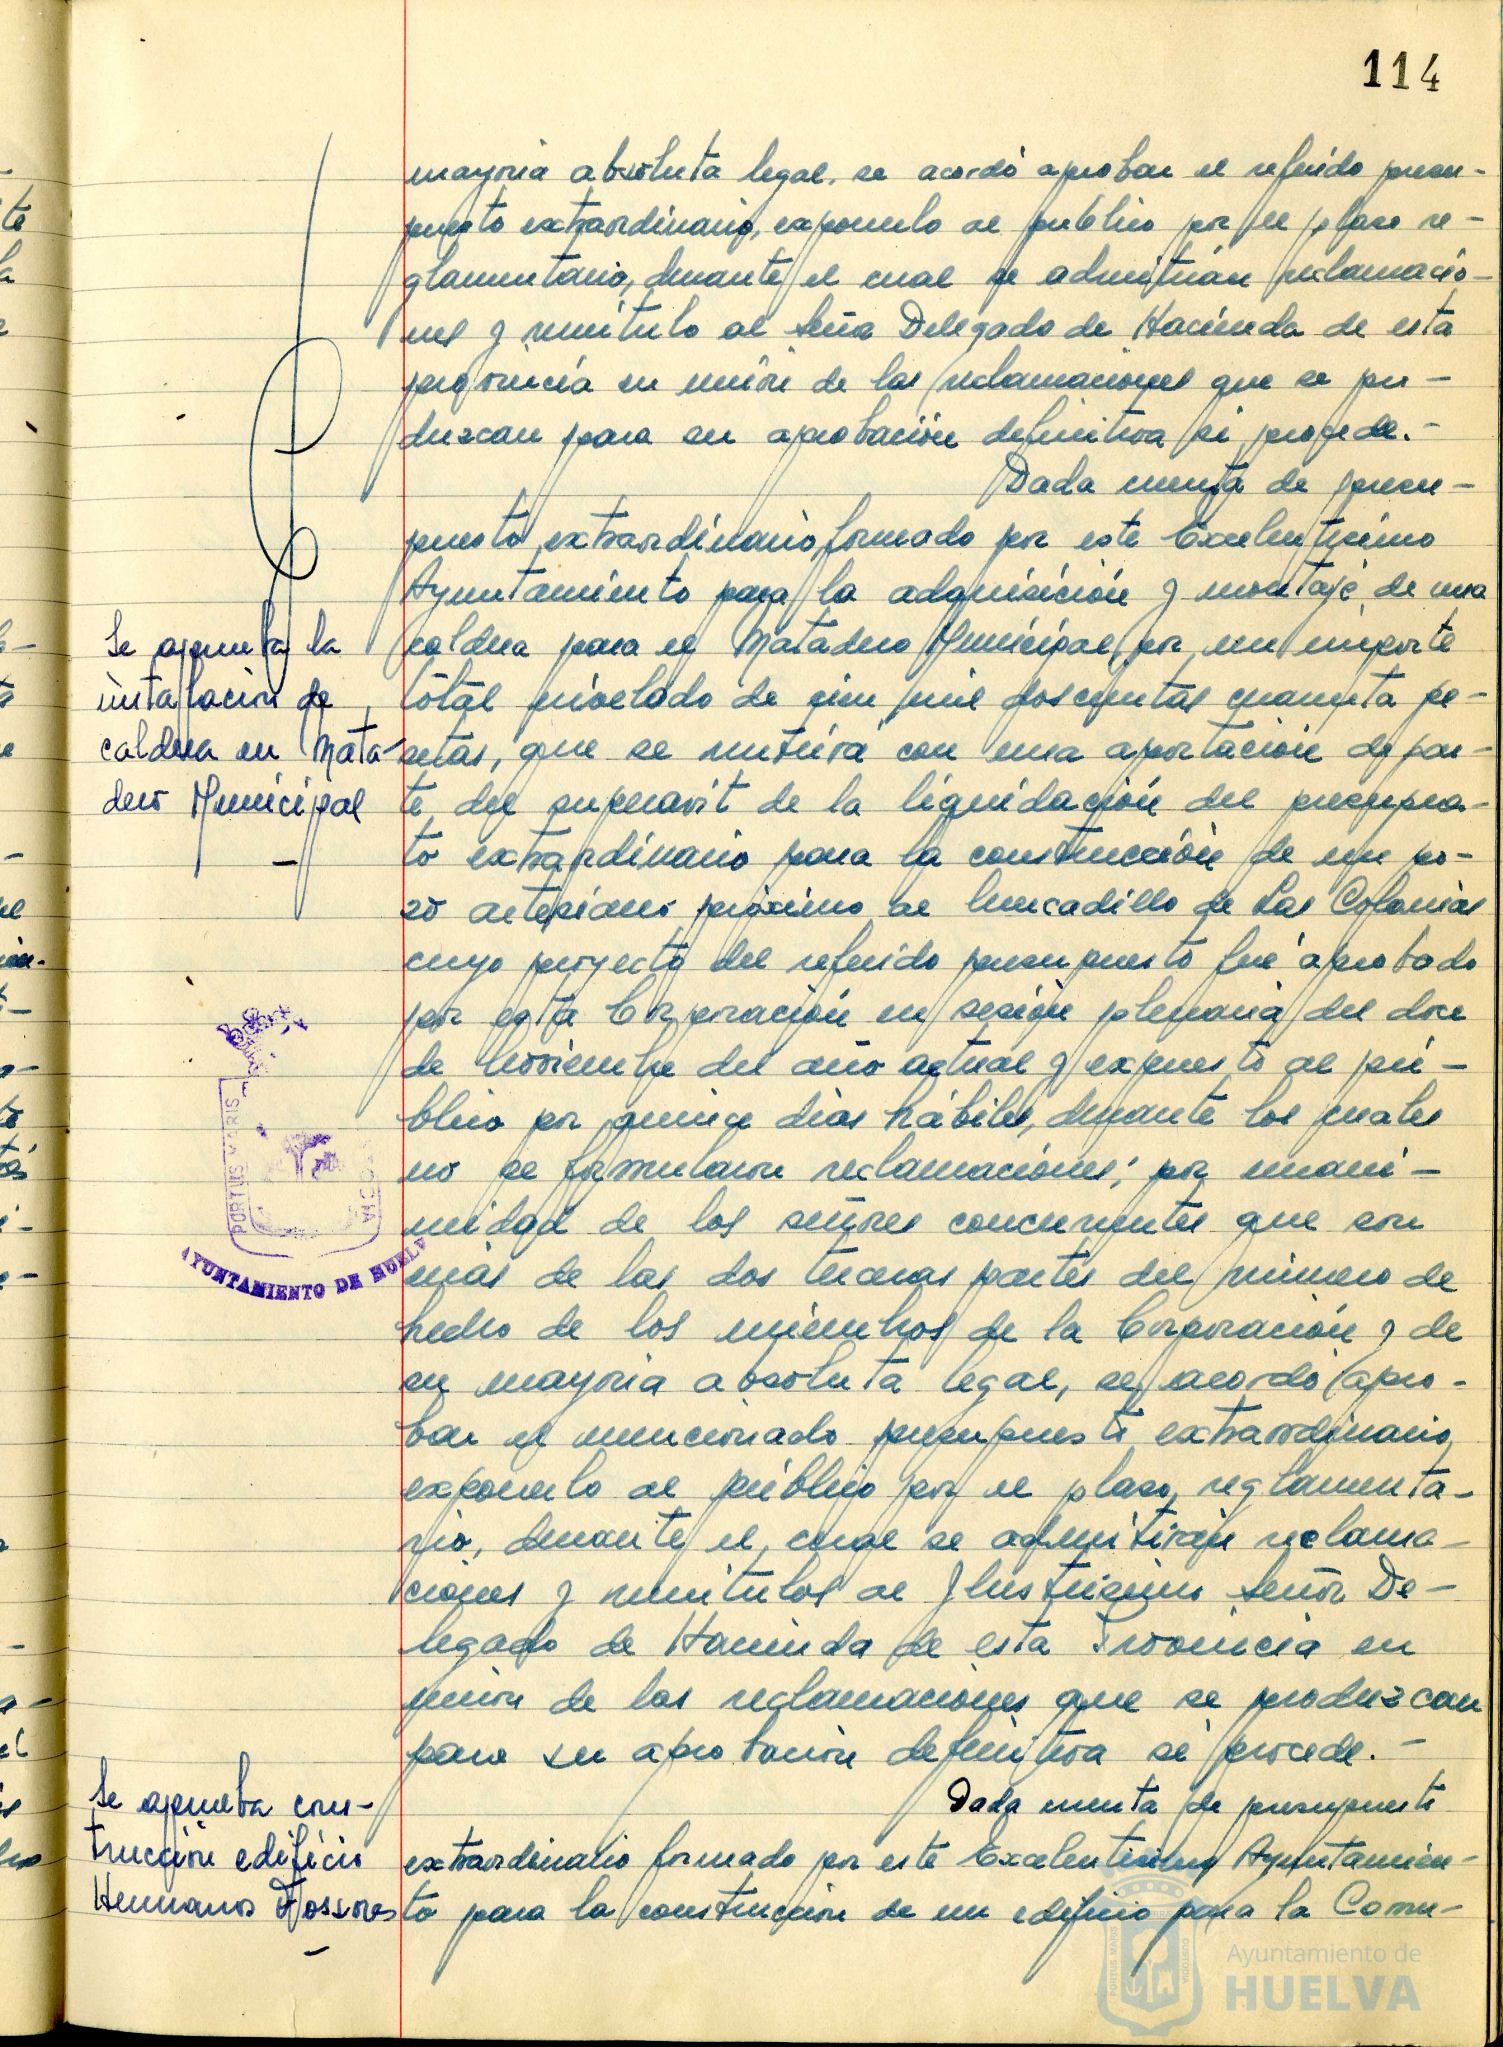 114
mayoria absoluta legal, se acordó aprobar el referido presu-
puesto extraordinario, exponerlo al publico por el plazo re-
glamentario, durante el cual se admitirán reclamacio-
nes y remitirlo al señor Delegado de Hacienda de esta
provincia en unión de las reclamaciones que se pro-
duzcan para su aprobación definitiva si procede.-
Dada cuenta de presu-
puesto extraordinario formado por este Excelentisimo
Ayuntamiento para la adquisición y montaje de una
caldera para el Matadero Municipal, por un importe
total nivelado de cien mil doscientas cuarenta pe-
setas, que se nutrirá con una aportación de par-
te del superavit de la liquidación del presupues-
to extraordinario para la construcción de un po-
zo artesiano próximo al Mercadillo de Las Colonias
cuyo proyecto del referido presupuesto fué aprobado
por esta Corporación en sesión plenaria del doce
de Noviembre del año actual y expuesto al pú-
blico por quince dias hábiles, durante los cuales
no se formularon reclamaciones; por unani-
midad de los señores concurrentes que son
más de las dos terceras partes del número de
hecho de los miembros de la Corporación y de
su mayoria absoluta legal, se acordó apro-
bar el mencionado presupuesto extraordinario,
exponerlo al público por el plazo reglamenta-
rio, durante el cual se admitirán reclama-
ciones y remitirlos al Ilustrisimo señor De-
legado de Hacienda de esta Provincia en
unión de las reclamaciones que se produzcan
para su aprobación definitiva si procede.-
Dada cuenta de presupuesto
extraordinario formado por este Excelentisimo Ayuntamien-
to para la construcción de un edificio para la Comu-
Se aprueba la
instalación de
caldera en Mata-
dero Municipal
-
PORTUS MARIS
AYUNTAMIENTO DE HUELVA
Se aprueba cons-
trucción edificio
Hermanos Fossores
-
Ayuntamiento de
HUELVA